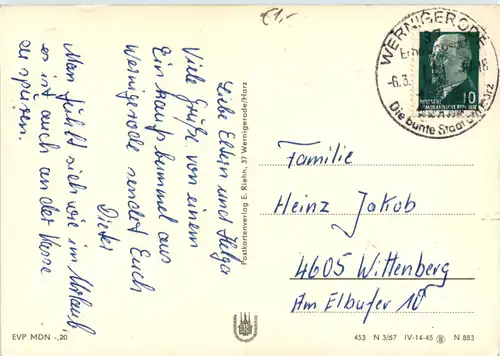 €1,-
Liebe Eltern und Helga
Viele Grüße von einem
Einkaufsbummel aus
Wernigerode sendet Euch
Dieter
Man fühlt sich wie im Urlaub,
es ist auch an der Kasse
zu spüren.
Postkartenverlag E. Riehn, 37 Wernigerode/Harz
WERNIGERODE
-6.3.
-18
Die bunte Stadt am Harz
10
DEUTSCHE
DEMOKRATISCHE REPUBLIK
Familie
Heinz Jakob
4605 Wittenberg
Am Elbufer 10
EVP MDN -,20
453 N 3/67 IV-14-45 N 883